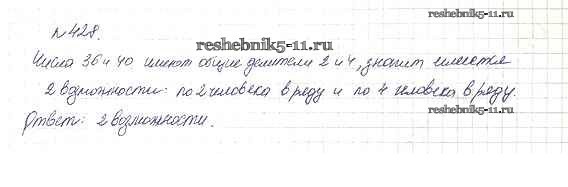 №428.
reshebnik5-11.ru
Числа 36 и 40 имеют общие делители 2 и 4, значит имеется
2 возможности: по 2 человека в ряду и по 4 человека в ряду.
reshebnik5-11.ru
Ответ: 2 возможности.